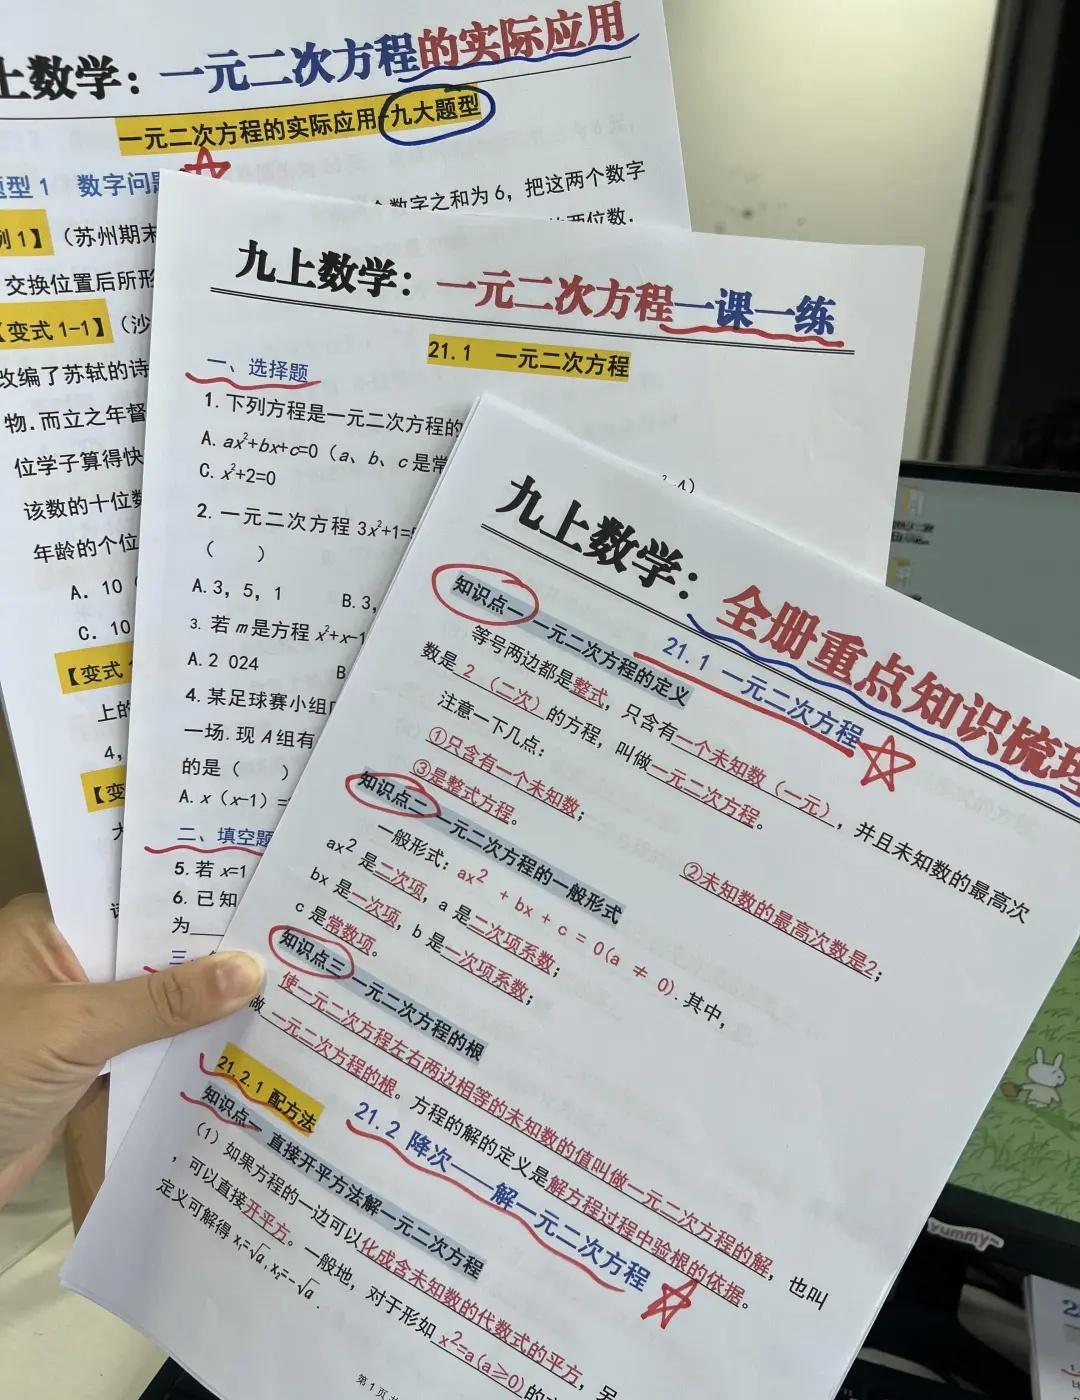 上数学：一元二次方程的实际应用
一元二次方程的实际应用-九大题型
题型1 数字问题
例1】（苏州期末
数字之和为6，把这两个数字
交换位置后所形
的两位数.
【变式1-1】（沙
改编了苏轼的诗
物.而立之年督
位学子算得快
该数的十位数
年龄的个位
A．10
C．10
【变式
上的
4，
【变
九上数学：一元二次方程一课一练
21.1 一元二次方程
一、选择题
1.下列方程是一元二次方程的
A.ax²+bx+c=0（a、b、c是常
C.x²+2=0
2.一元二次方程3x²+1=
（ ）
A.3，5，1 B.3，
3.若m是方程x²+x-1
A.2 024 B
4.某足球赛小组
一场.现A组有
的是（ ）
A.x（x-1）=
二、填空题
5.若x=1
6.已知
为
三、
九上数学：全册重点知识梳理
21.1 一元二次方程
知识点一 一元二次方程的定义
等号两边都是整式，只含有一个未知数（一元），并且未知数的最高次
数是2（二次）的方程，叫做一元二次方程。
注意一下几点：
①只含有一个未知数； ②未知数的最高次数是2；
③是整式方程。
知识点二 一元二次方程的一般形式
一般形式：ax² + bx + c = 0(a ≠ 0).其中，
ax²是二次项，a是二次项系数；
bx是一次项，b是一次项系数；
c是常数项。
知识点三 一元二次方程的根
使一元二次方程左右两边相等的未知数的值叫做一元二次方程的解，也叫
做一元二次方程的根。方程的解的定义是解方程过程中验根的依据。
21.2 降次——解一元二次方程
21.2.1 配方法
知识点一 直接开平方法解一元二次方程
（1）如果方程的一边可以化成含未知数的代数式的平方，另
，可以直接开平方。一般地，对于形如x²=a(a≥0)的
定义可解得x₁=√a,x₂=-√a.
第1页
yummy~